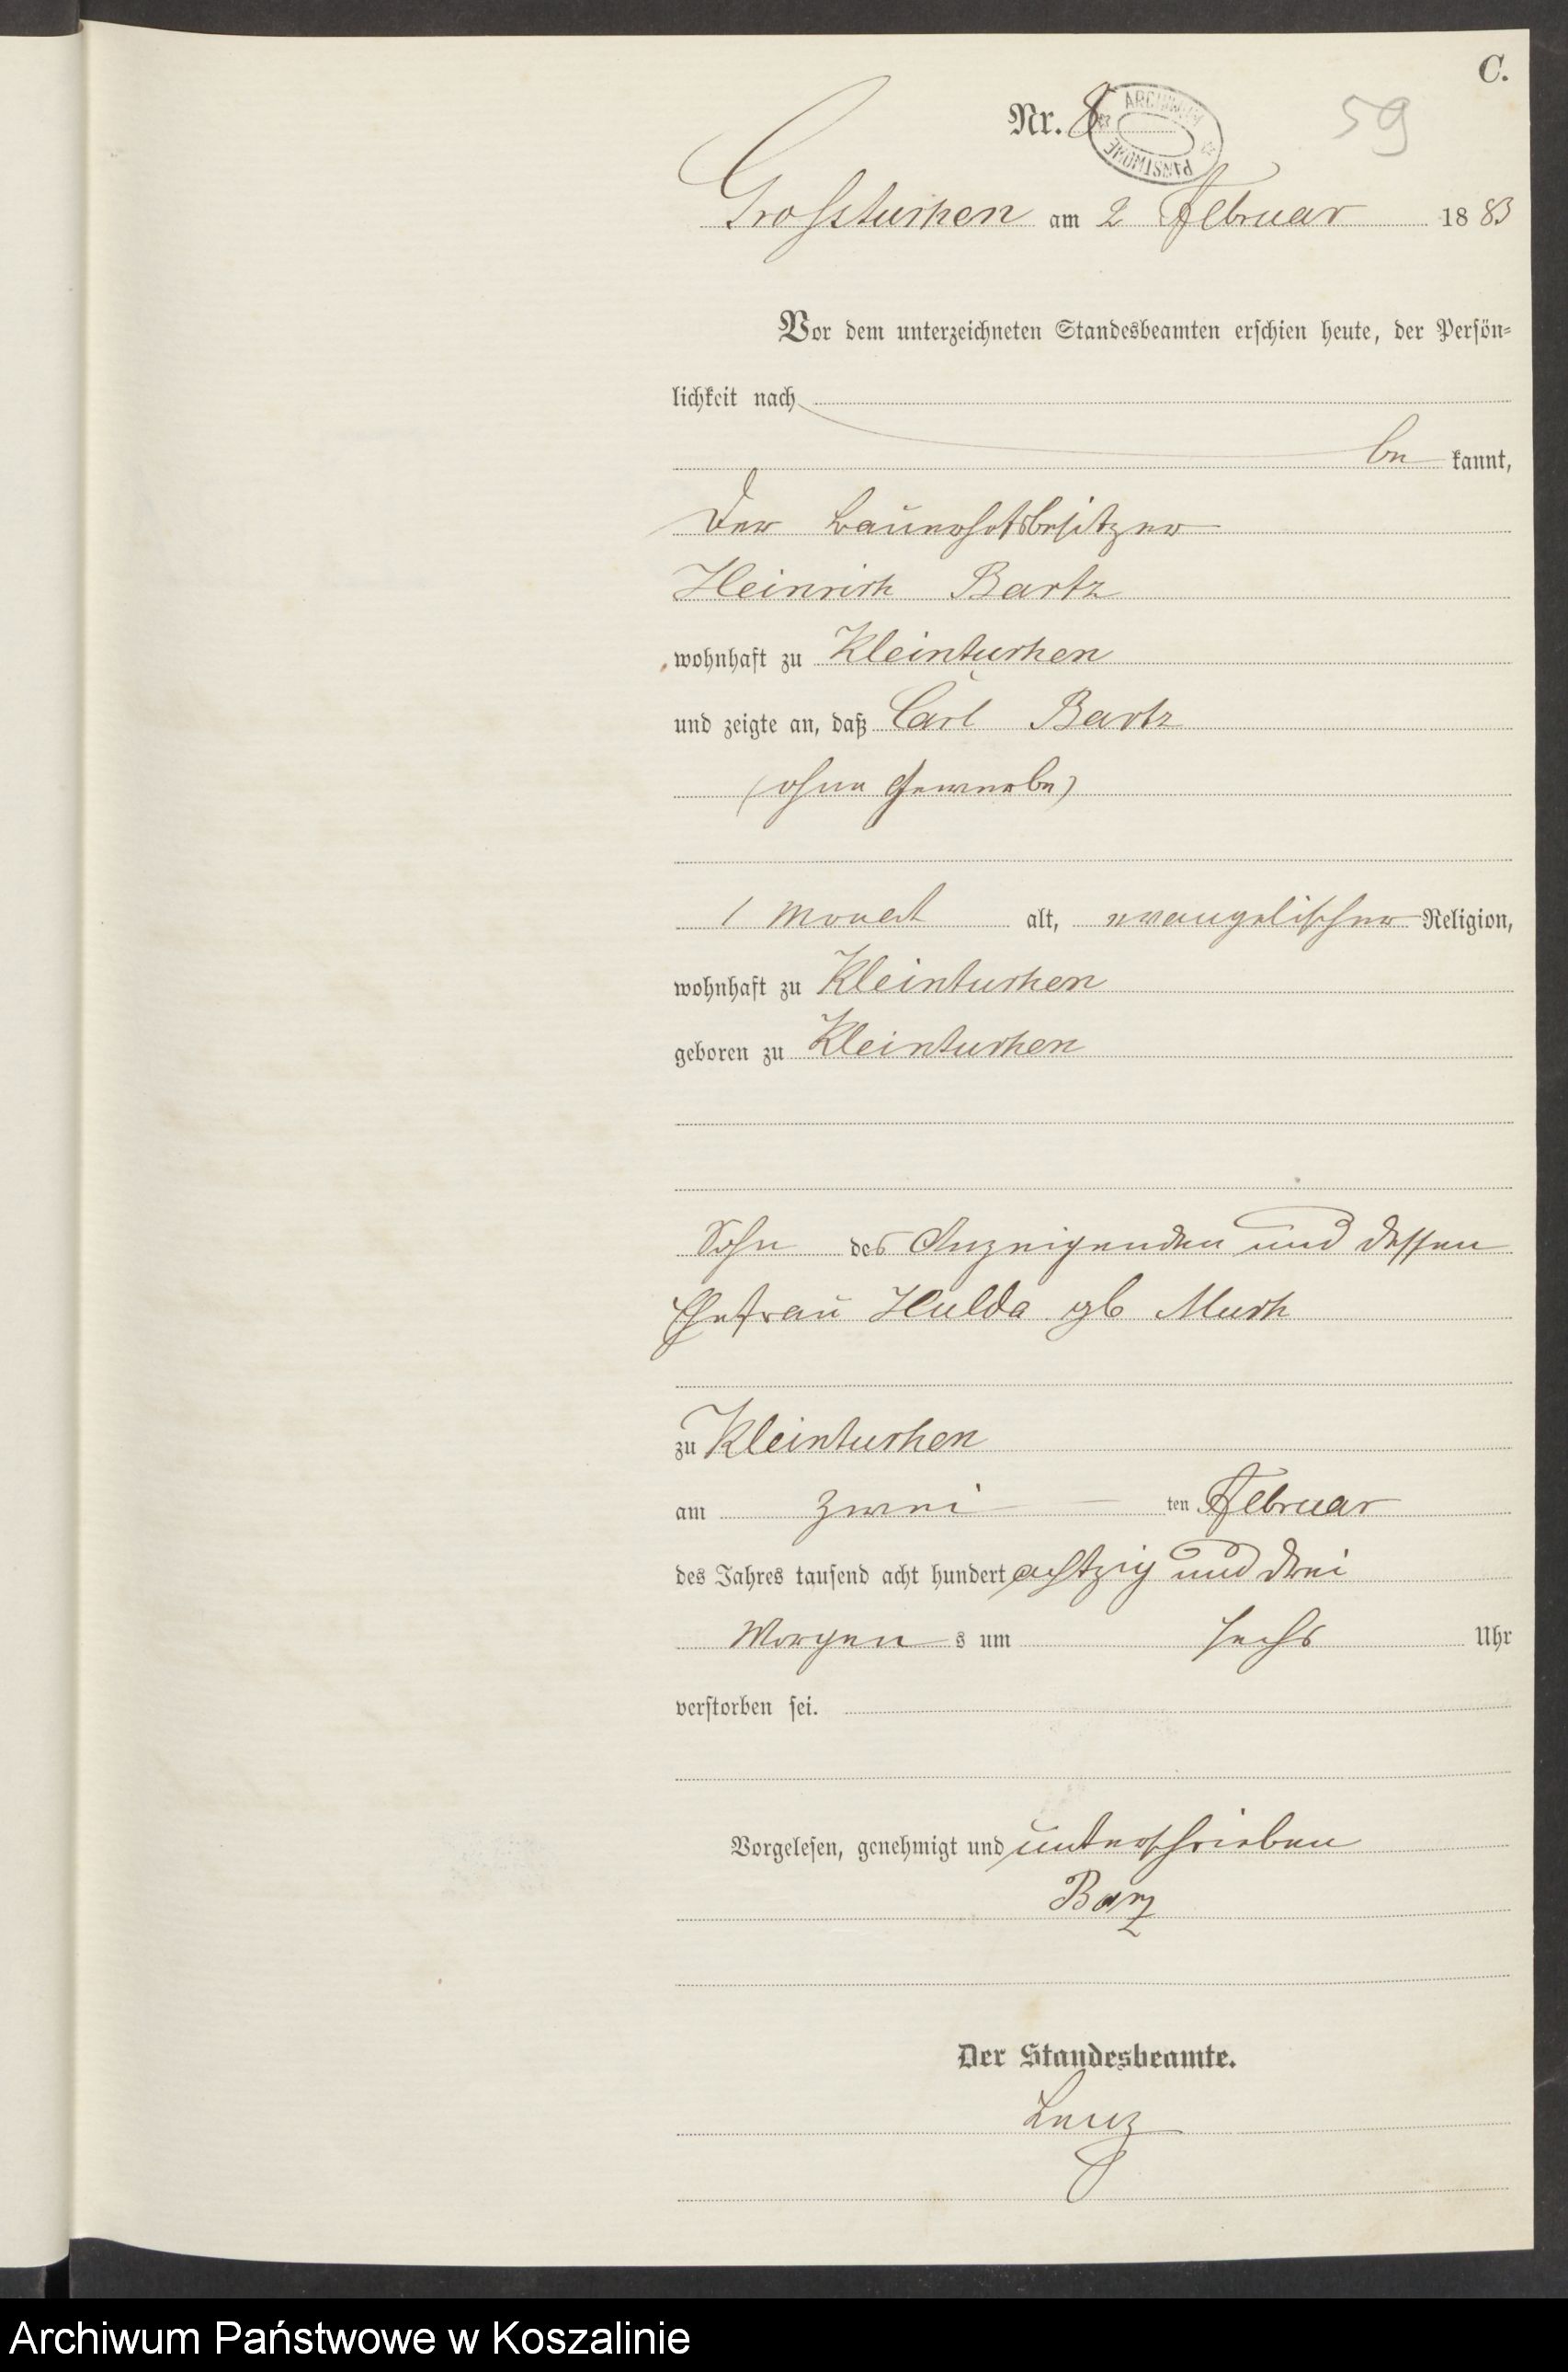 C.
Nr. 8
ARCHIWUM
PAŃSTWOWE
59
Grossturhen am 2 Februar 1883
Vor dem unterzeichneten Standesbeamten erschien heute, der Persön-
lichkeit nach
be kannt,
der Bauerhofsbesitzer
Heinrich Bartz
wohnhaft zu Kleintuchen
und zeigte an, daß Carl Bartz
(ohne Gewerbe)
1 Monat alt, evangelischer Religion,
wohnhaft zu Kleintuchen
geboren zu Kleintuchen
Sohn des Anzeigenden und dessen
Ehefrau Hulda gb
zu Kleintuchen
am zwei ten Februar
des Jahres tausend acht hundert achtzig und drei
Morgen s um sechs Uhr
verstorben sei.
Vorgelesen, genehmigt und unterschrieben
Barz
Der Standesbeamte.
Archiwum Państwowe w Koszalinie